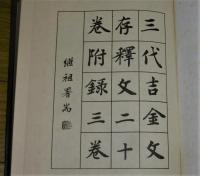 三代吉金文
存釋文二十
卷附錄三卷
繼祖署耑